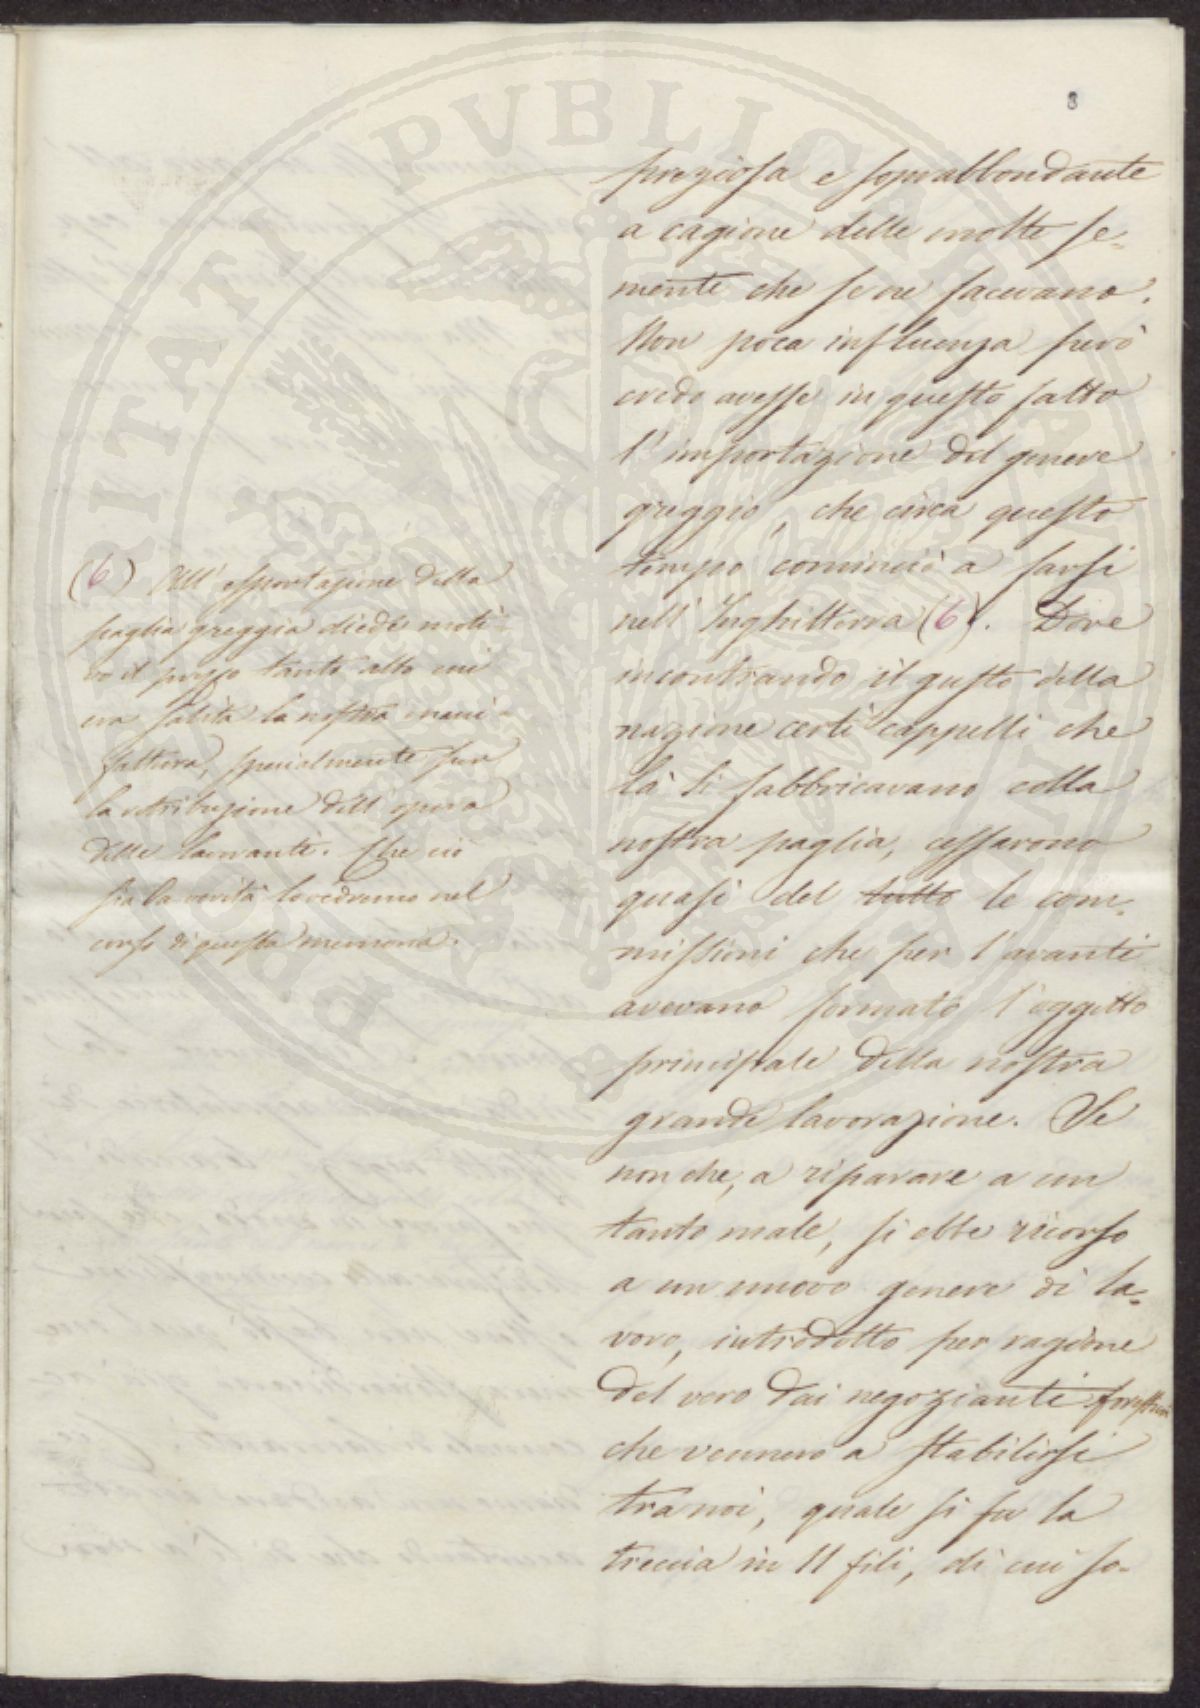 8
preziosa e soprabbondante
a cagione delle molte se-
mente che se ne facevano.
Non poca influenza però
credo avesse in questo fatto
l'importazione del genere
greggio, che circa questo
tempo cominciò a farsi
nell'Inghilterra (6). Dove
incontrando il gusto della
nazione certi cappelli che
là si fabbricavano colla
nostra paglia, cessarono
quasi del tutto le com-
missioni che per l'avanti
avevano formato l'oggetto
principale della nostra
grande lavorazione. Se
non che, a riparare a un
tanto male, si ebbe ricorso
a un nuovo genere di la-
voro, introdotto per ragione
del vero dai negozianti forestieri
che vennero a stabilirsi
tra noi, quale si fu la
treccia in 11 fili, di cui so-
(6) All'esportazione della
paglia greggia diede moti-
vo il prezzo tanto alto cui
era salita la nostra mani-
fattura, specialmente per
la retribuzione dell'opera
delle lavoranti. Che ciò
sia la verità lo vedremo nel
corso di questa memoria.
PVBLICAE
VTILITATI